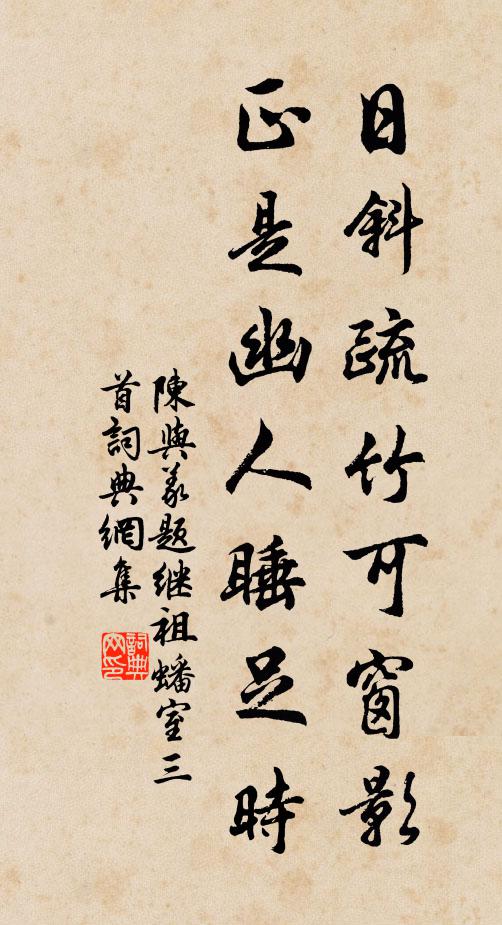 日斜疏竹可窗影
正是幽人睡足時
陳與義題继祖蟠室三
首詞典網集
詞典
网印